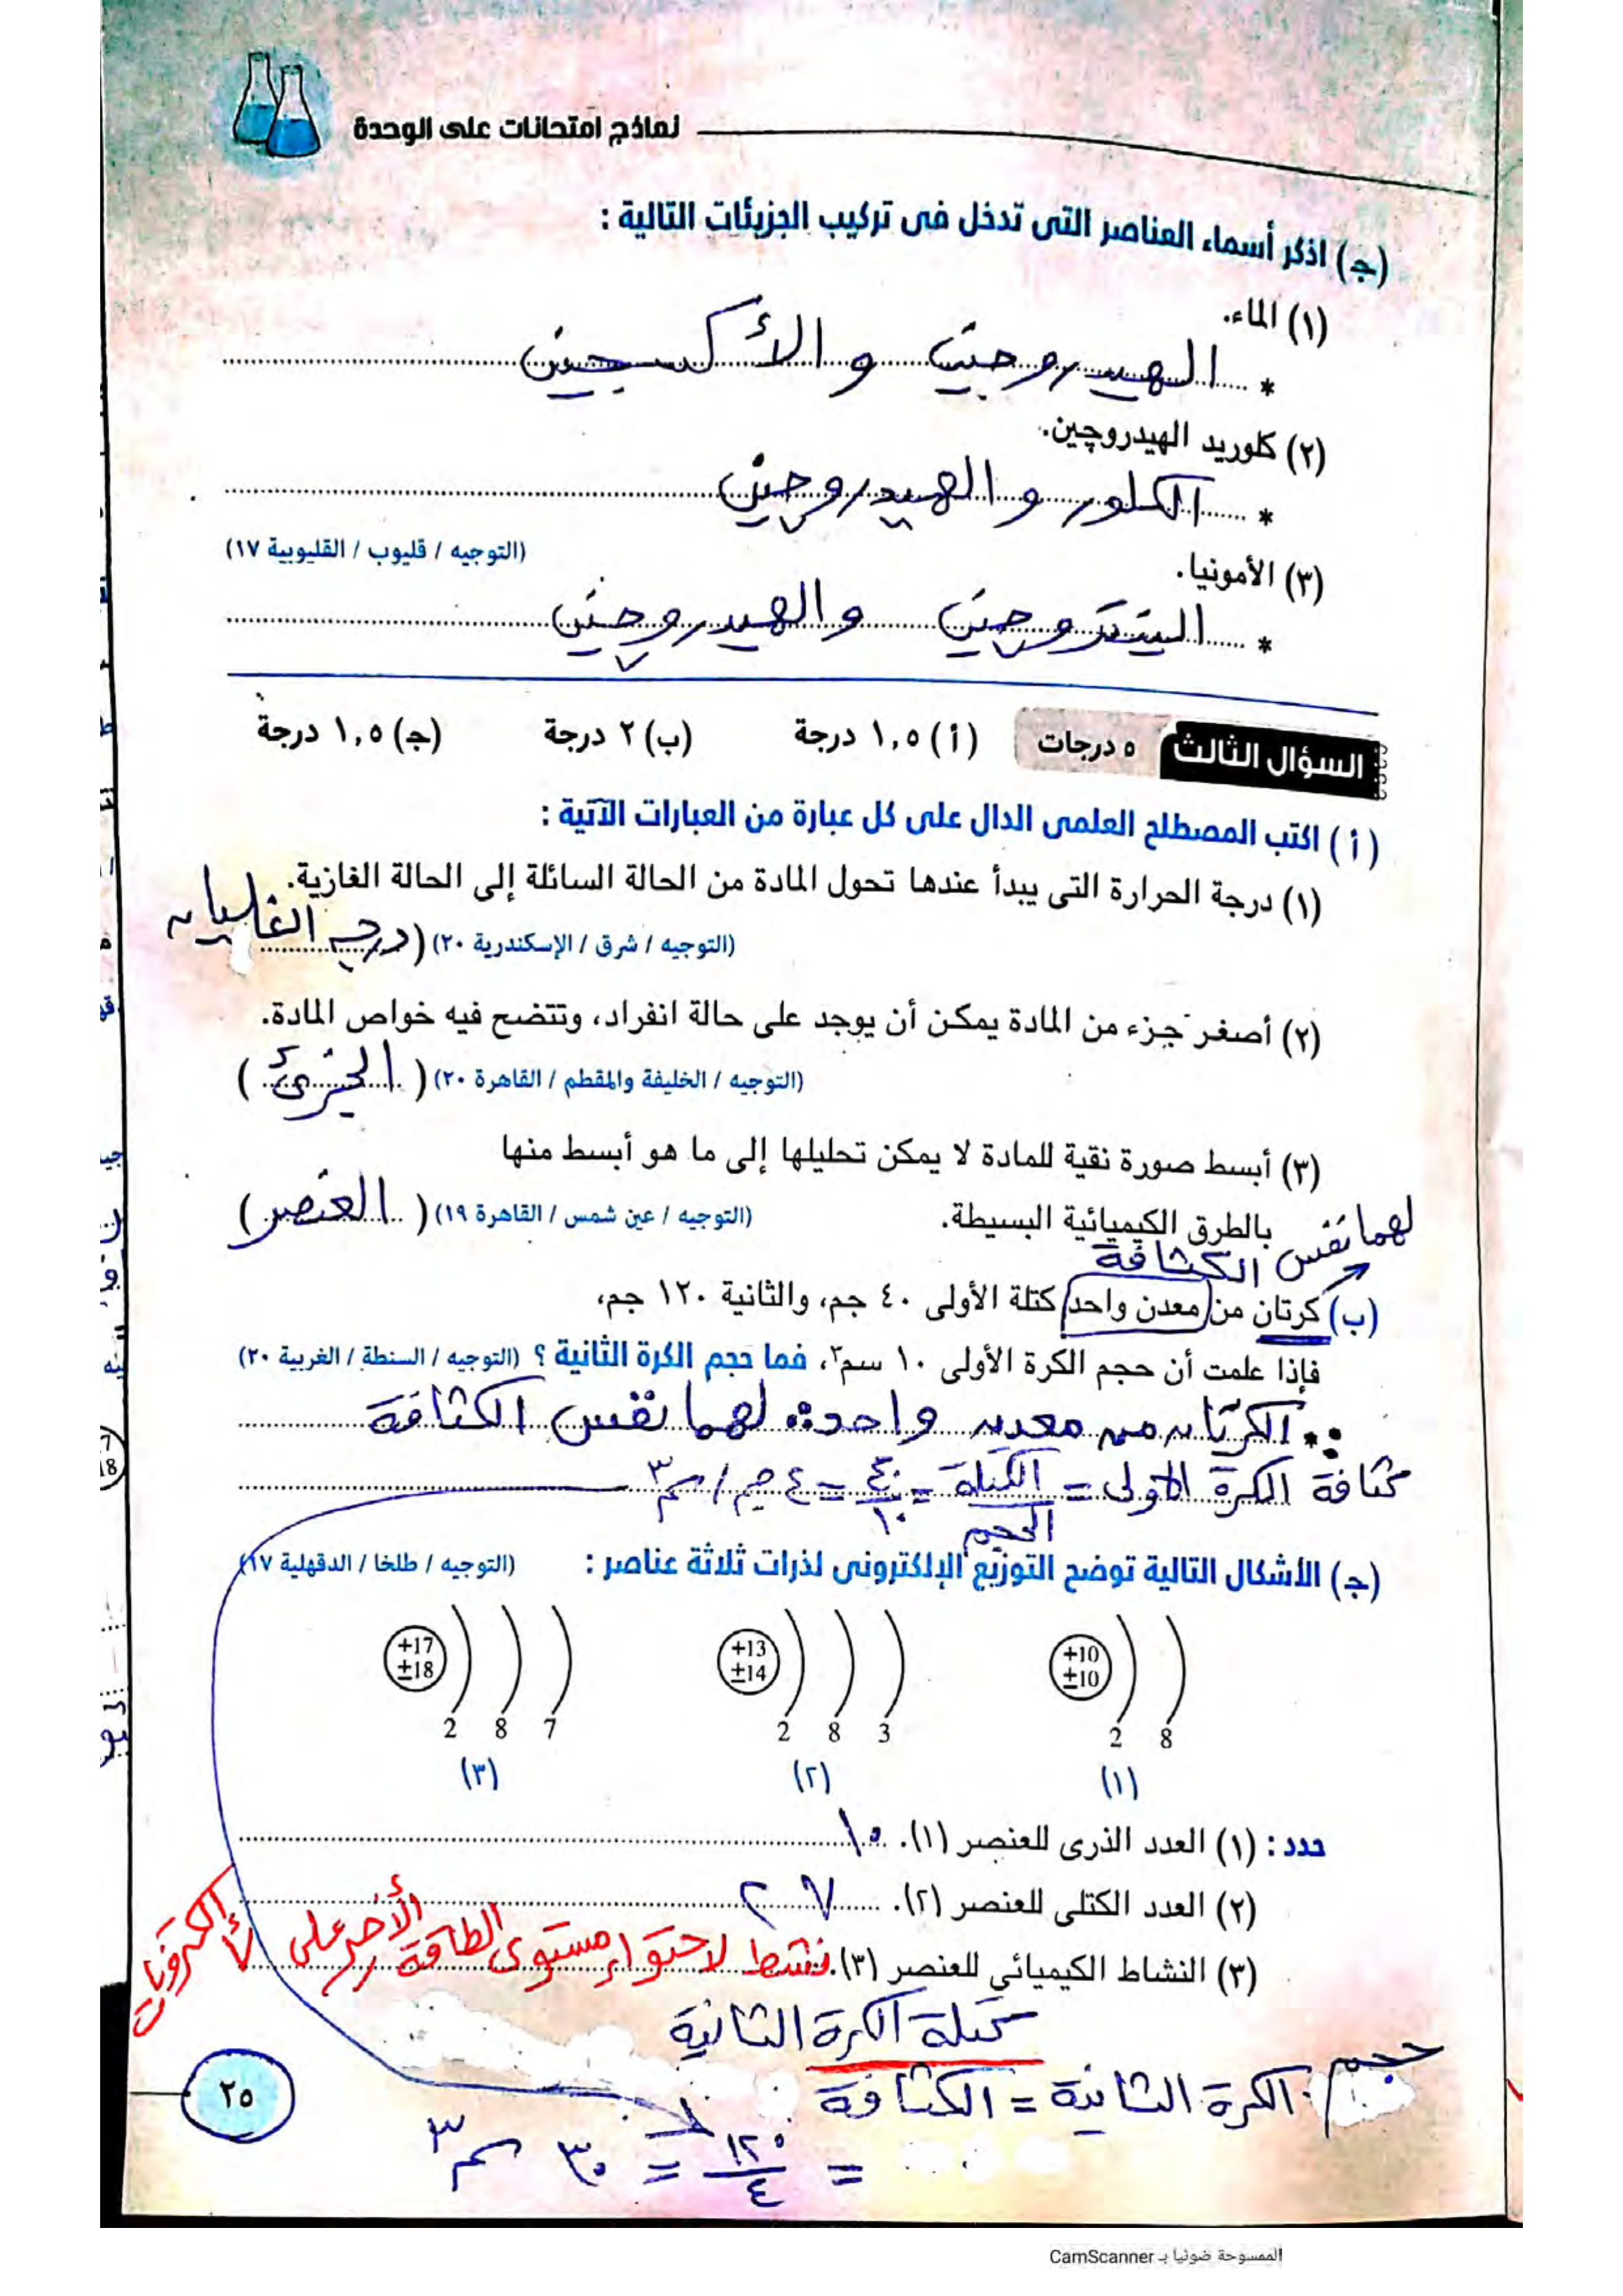 نماذج امتحانات على الوحدة
(جـ) اذكر أسماء العناصر التى تدخل فى تركيب الجزيئات التالية :
(١) الماء.
* الهيدروجين والأكسجين
(٢) كلوريد الهيدروچين.
* الكلور والهيدروچين
(التوجيه / قليوب / القليوبية ١٧)
(٣) الأمونيا.
* النيتروچين والهيدروچين
السؤال الثالث ٥ درجات (أ) ١,٥ درجة (ب) ٢ درجة (جـ) ١,٥ درجة
(أ) اكتب المصطلح العلمى الدال على كل عبارة من العبارات الآتية :
(١) درجة الحرارة التى يبدأ عندها تحول المادة من الحالة السائلة إلى الحالة الغازية.
(التوجيه / شرق / الإسكندرية ٢٠) (درجة الغليان
(٢) أصغر جزء من المادة يمكن أن يوجد على حالة انفراد، وتتضح فيه خواص المادة.
(التوجيه / الخليفة والمقطم / القاهرة ٢٠) (الجزئ)
(٣) أبسط صورة نقية للمادة لا يمكن تحليلها إلى ما هو أبسط منها
بالطرق الكيميائية البسيطة. (التوجيه / عين شمس / القاهرة ١٩) (العنصر)
لهما نفس الكثافة
(ب) كرتان من معدن واحد كتلة الأولى ٤٠ جم، والثانية ١٢٠ جم،
فإذا علمت أن حجم الكرة الأولى ١٠ سم٣، فما حجم الكرة الثانية ؟ (التوجيه / السنطة / الغربية ٢٠)
∵ الكرتان من معدن واحد ∴ لهما نفس الكثافة
كثافة الكرة الأولى = الكتلة / الحجم = ٤٠ / ١٠ = ٤ جم / سم٣
(جـ) الأشكال التالية توضح التوزيع الإلكترونى لذرات ثلاثة عناصر : (التوجيه / طلخا / الدقهلية ١٧)
+10 ±10 2 8
+13 ±14 2 8 3
+17 ±18 2 8 7
(١) (٢) (٣)
حدد : (١) العدد الذرى للعنصر (١). ١٠
(٢) العدد الكتلى للعنصر (٢). ٢٧
(٣) النشاط الكيميائى للعنصر (٣). نشط لاحتواء مستوى الطاقة الأخير على ٧ إلكترونات
كتلة الكرة الثانية
حجم الكرة الثانية = الكثافة
= ١٢٠ / ٤ = ٣٠ سم٣
٢٥
الممسوحة ضوئيا بـ CamScanner